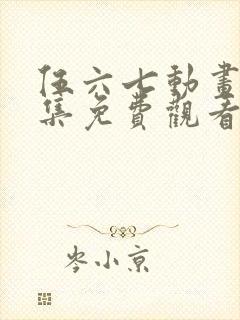 伍六七動畫
集免費觀看
岑小京